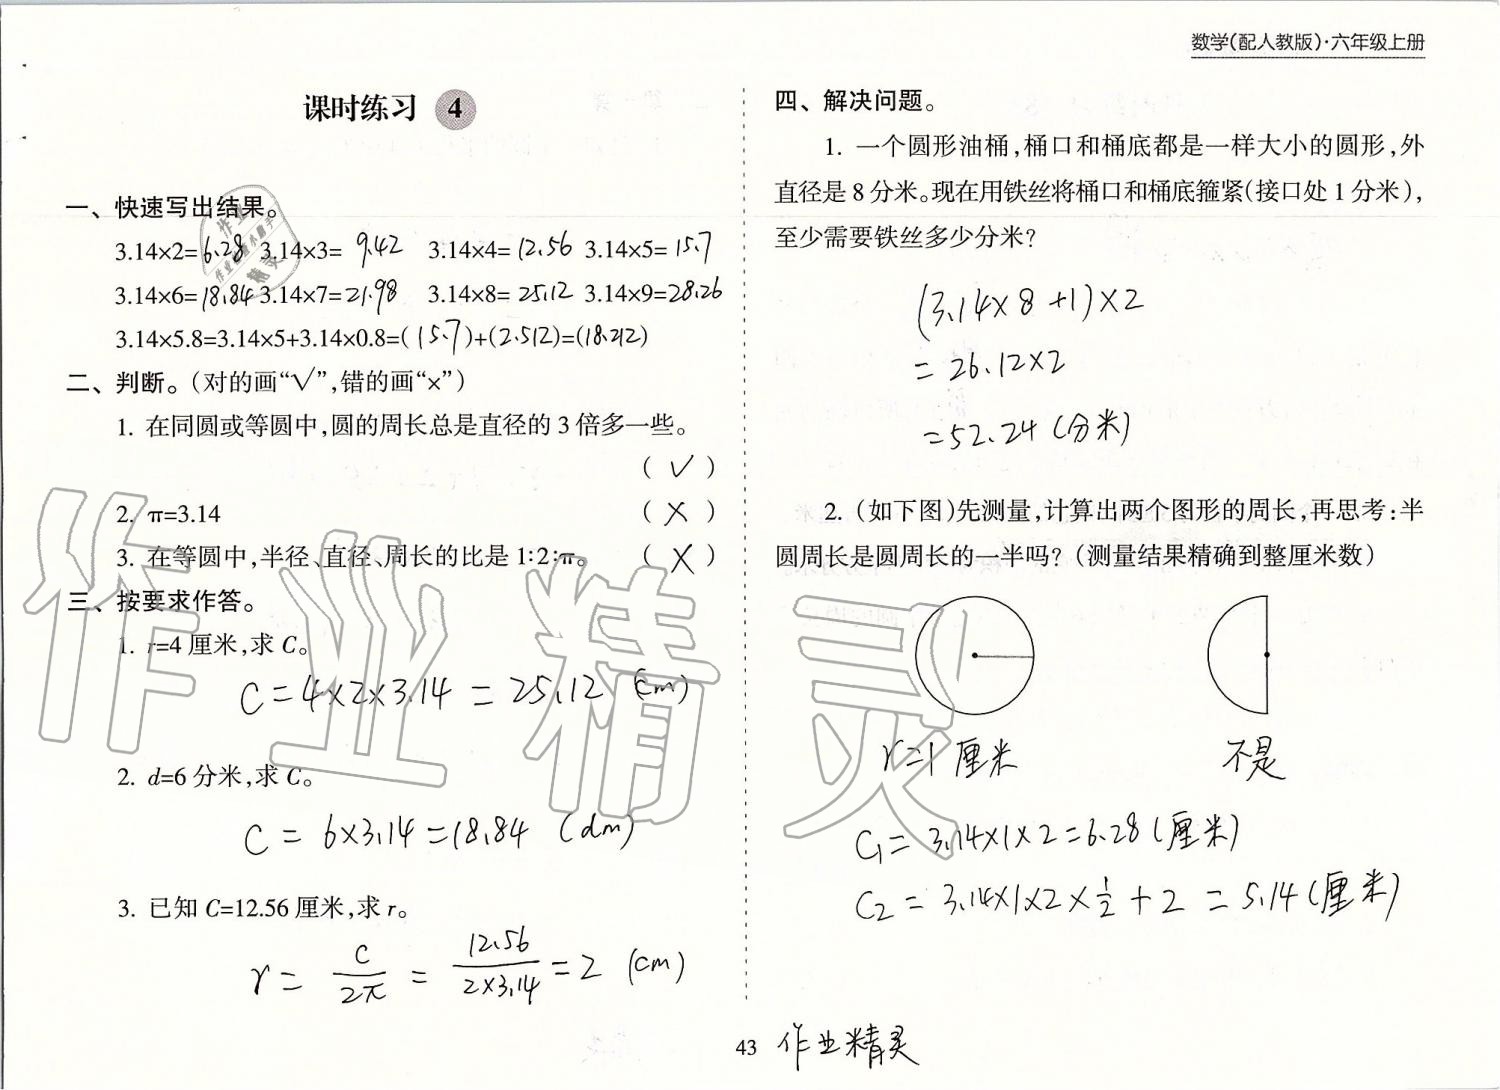 数学(配人教版)·六年级上册
课时练习 4
一、快速写出结果。
3.14×2=6.28 3.14×3= 9.42 3.14×4=12.56 3.14×5=15.7
3.14×6=18.84 3.14×7=21.98 3.14×8=25.12 3.14×9=28.26
3.14×5.8=3.14×5+3.14×0.8=(15.7)+(2.512)=(18.212)
二、判断。(对的画“√”,错的画“×”)
1. 在同圆或等圆中,圆的周长总是直径的3倍多一些。
(√)
2. π=3.14 (×)
3. 在等圆中,半径、直径、周长的比是1∶2∶π。 (×)
三、按要求作答。
1. r=4厘米,求C。
C=4×2×3.14=25.12 (cm)
2. d=6分米,求C。
C=6×3.14=18.84 (dm)
3. 已知C=12.56厘米,求r。
r=C/2π=12.56/2×3.14=2 (cm)
四、解决问题。
1. 一个圆形油桶,桶口和桶底都是一样大小的圆形,外
直径是8分米。现在用铁丝将桶口和桶底箍紧(接口处1分米),
至少需要铁丝多少分米?
(3.14×8+1)×2
=26.12×2
=52.24(分米)
2. (如下图)先测量,计算出两个图形的周长,再思考:半
圆周长是圆周长的一半吗?(测量结果精确到整厘米数)
r=1厘米 不是
C1=3.14×1×2=6.28(厘米)
C2=3.14×1×2×1/2+2=5.14(厘米)
43 作业精灵
作业精灵